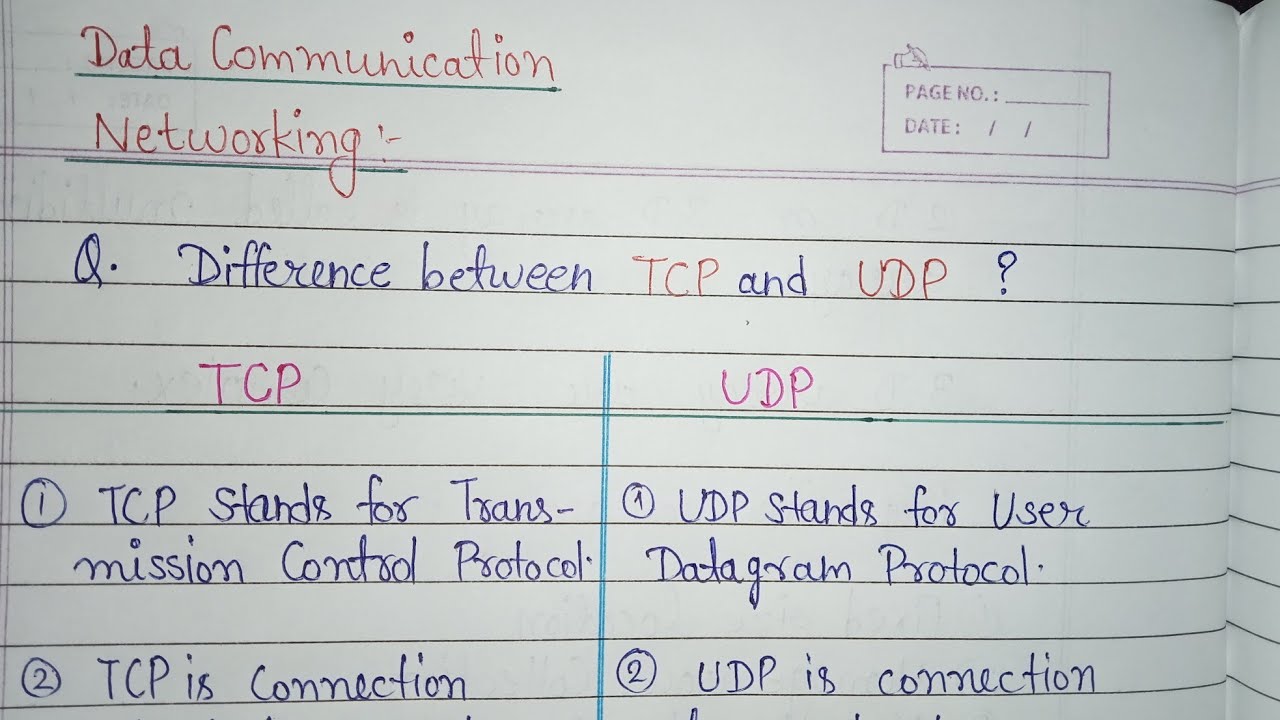 Data Communication
Networking :-
PAGE NO.:
DATE: / /
Q. Difference between TCP and UDP ?
TCP
UDP
① TCP stands for Trans-
mission Control Protocol.
① UDP stands for User
Datagram Protocol.
② TCP is connection
② UDP is connection